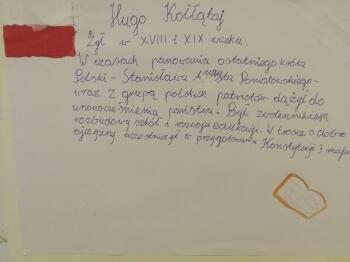 Hugo Kołłątaj
Żył w XVIII i XIX wieku.
W czasach panowania ostatniego króla
Polski - Stanisława Augusta Poniatowskiego -
wraz z grupą polskich patriotów dążył do
unowocześnienia państwa. Był zwolennikiem
rozbudowy szkół i rozwoju edukacji. W trosce o dobro
ojczyzny uczestniczył w przygotowaniu Konstytucji 3 maja